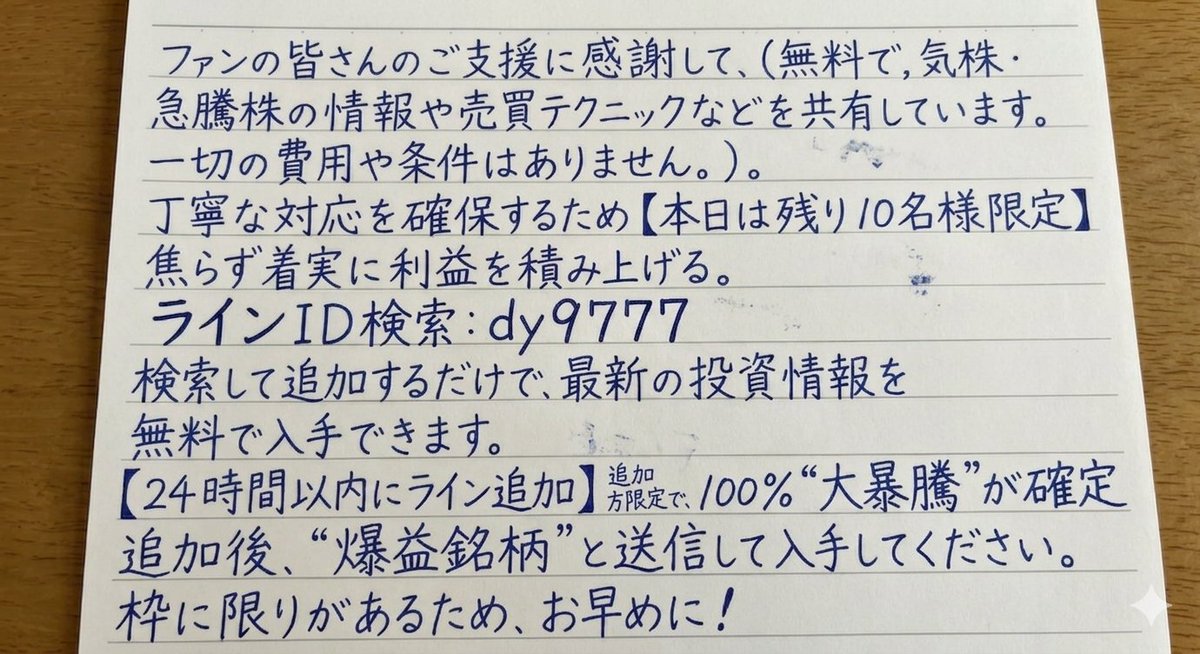 ファンの皆さんのご支援に感謝して、(無料で,気株・
急騰株の情報や売買テクニックなどを共有しています。
一切の費用や条件はありません。)。
丁寧な対応を確保するため【本日は残り10名様限定】
焦らず着実に利益を積み上げる。
ラインID検索:dy9777
検索して追加するだけで、最新の投資情報を
無料で入手できます。
【24時間以内にライン追加】追加方限定で、100%“大暴騰”が確定
追加後、“爆益銘柄”と送信して入手してください。
枠に限りがあるため、お早めに!